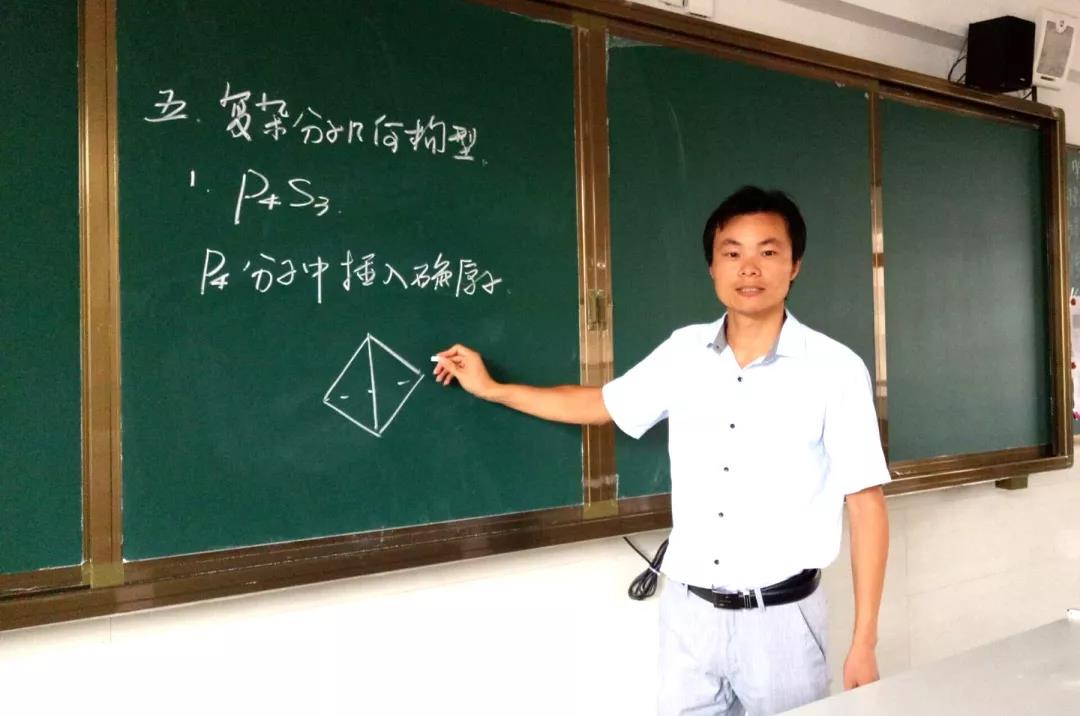 五. 复杂分子几何构型.
1. P₄S₃.
P₄分子中插入硫原子.